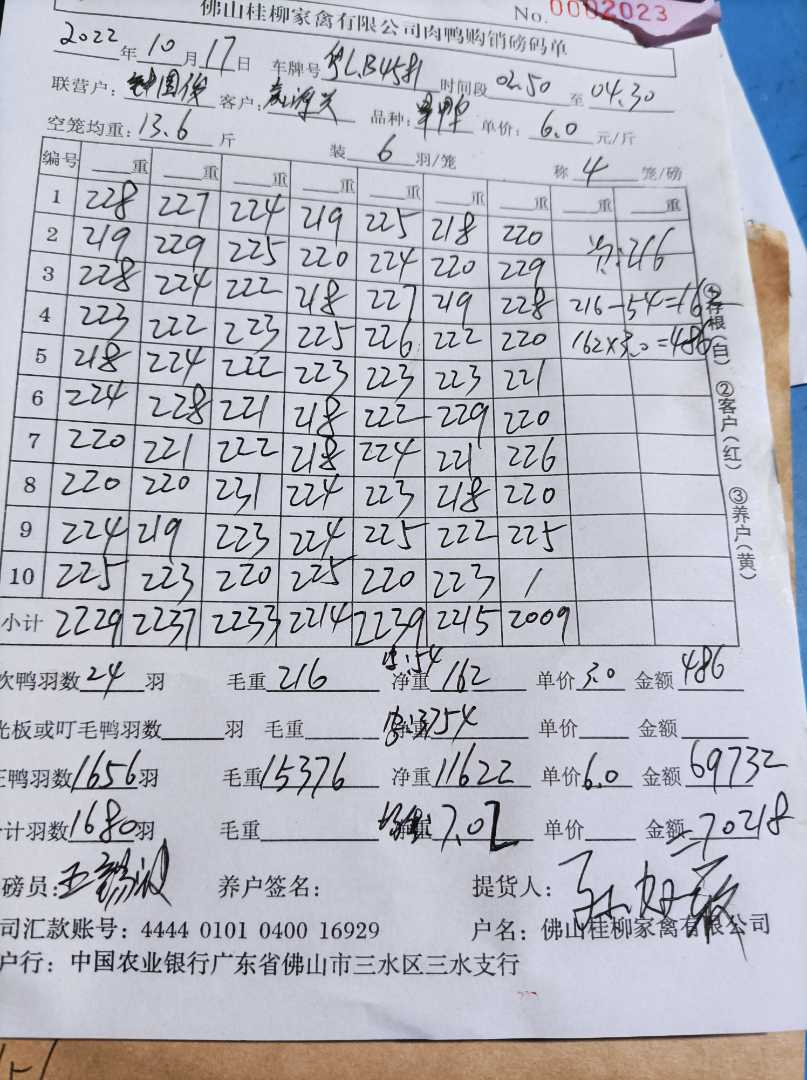 佛山桂柳家禽有限公司肉鸭购销磅码单
No. 0002023
2022年10月17日 车牌号 粤L.B4581 时间段 02.50 至 04.30
联营户: 客户: 品种: 单价: 6.0 元/斤
空笼均重: 13.6 斤 装 6 羽/笼 称 4 笼/磅
编号 重 重 重 重 重 重 重 重 重
1 228 227 224 219 225 218 220
2 219 229 225 220 224 220 229 次:216
3 228 224 222 218 227 219 228 216-54=16
4 223 222 223 225 226 222 220 162×3.0=486
5 218 224 222 223 223 223 221
6 224 228 221 218 222 229 220
7 220 221 222 218 224 221 226
8 220 220 231 224 223 218 220
9 224 219 223 224 225 222 225
10 225 223 220 225 220 223 /
小计 2229 2237 2233 2214 2239 2215 2009
①存根(白) ②客户(红) ③养户(黄)
次鸭羽数 24 羽 毛重 216 :54 净重 162 单价 3.0 金额 486
光板或叮毛鸭羽数 羽 毛重 净重 :3754 单价 金额
正鸭羽数 1656 羽 毛重 15376 净重 11622 单价 6.0 金额 69732
合计羽数 1680 羽 毛重 净重 均重:7.02 单价 金额 =70218
磅员: 养户签名: 提货人:
司汇款账号: 4444 0101 0400 16929 户名: 佛山桂柳家禽有限公司
户行: 中国农业银行广东省佛山市三水区三水支行